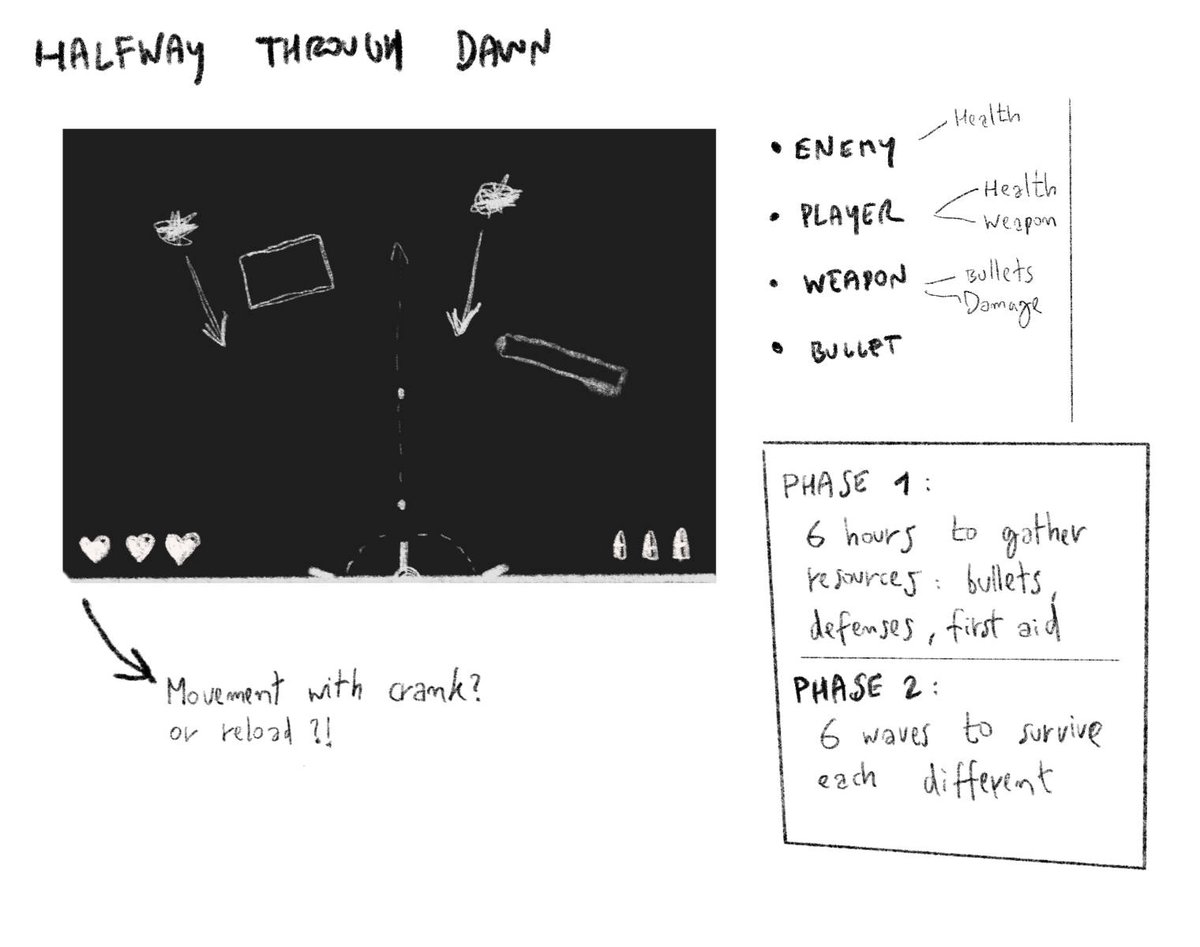 HALFWAY THROUGH DAWN
• ENEMY
Health
• PLAYER
Health
Weapon
• WEAPON
Bullets
Damage
• BULLET
PHASE 1:
6 hours to gather
resources: bullets,
defenses, first aid
PHASE 2:
6 waves to survive
each different
Movement with crank?
or reload?!